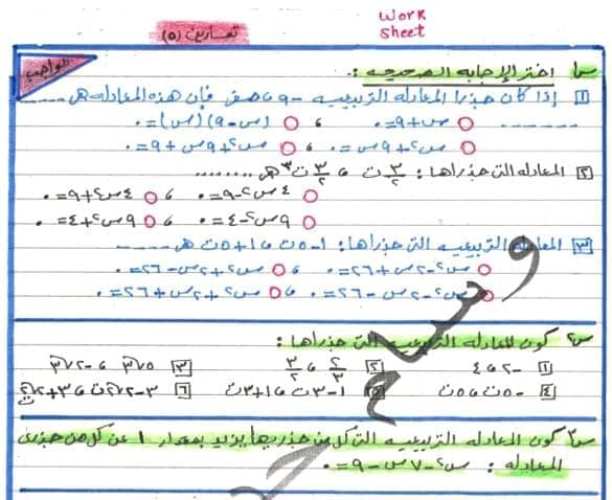 work
sheet
تمارين (٥)
الواجب
س١ اختر الإجابة الصحيحة :
[١] إذا كان جذرا المعادلة التربيعية -٩ ، صفر فإن هذه المعادلة هي
س+٩=٠ ، (س-٩)(س)=٠
س٢+٩س=٠ ، س٢+٩س+٩=٠
[٢] المعادلة التي جذراها : ٣/٢ ت ، ٣/٢ ت٣ هي ........
٤س٢-٩=٠ ، ٤س٢+٩=٠
٩س٢-٤=٠ ، ٩س٢+٤=٠
[٣] المعادلة التربيعية التي جذراها : ١-٥ت ، ١+٥ت هي
س٢-٢س+٢٦=٠ ، س٢+٢س-٢٦=٠
س٢-٢س-٢٦=٠ ، س٢+٢س+٢٦=٠
س٢ كون المعادلة التربيعية التي جذراها :
[١] -٢ ، ٤ [٢] ٢/٣ ، ٣/٢ [٣] ٥√٣ ، -٢√٣
[٤] -٥ت ، ٥ت [٥] ١-٣ت ، ١+٣ت [٦] ٣-٢√٢ت ، ٣+٢√٢ت
س٣ كون المعادلة التربيعية التي كل من جذريها يزيد بمقدار ١ عن كل من جذري
المعادلة : س٢-٧س-٩=٠
وسام